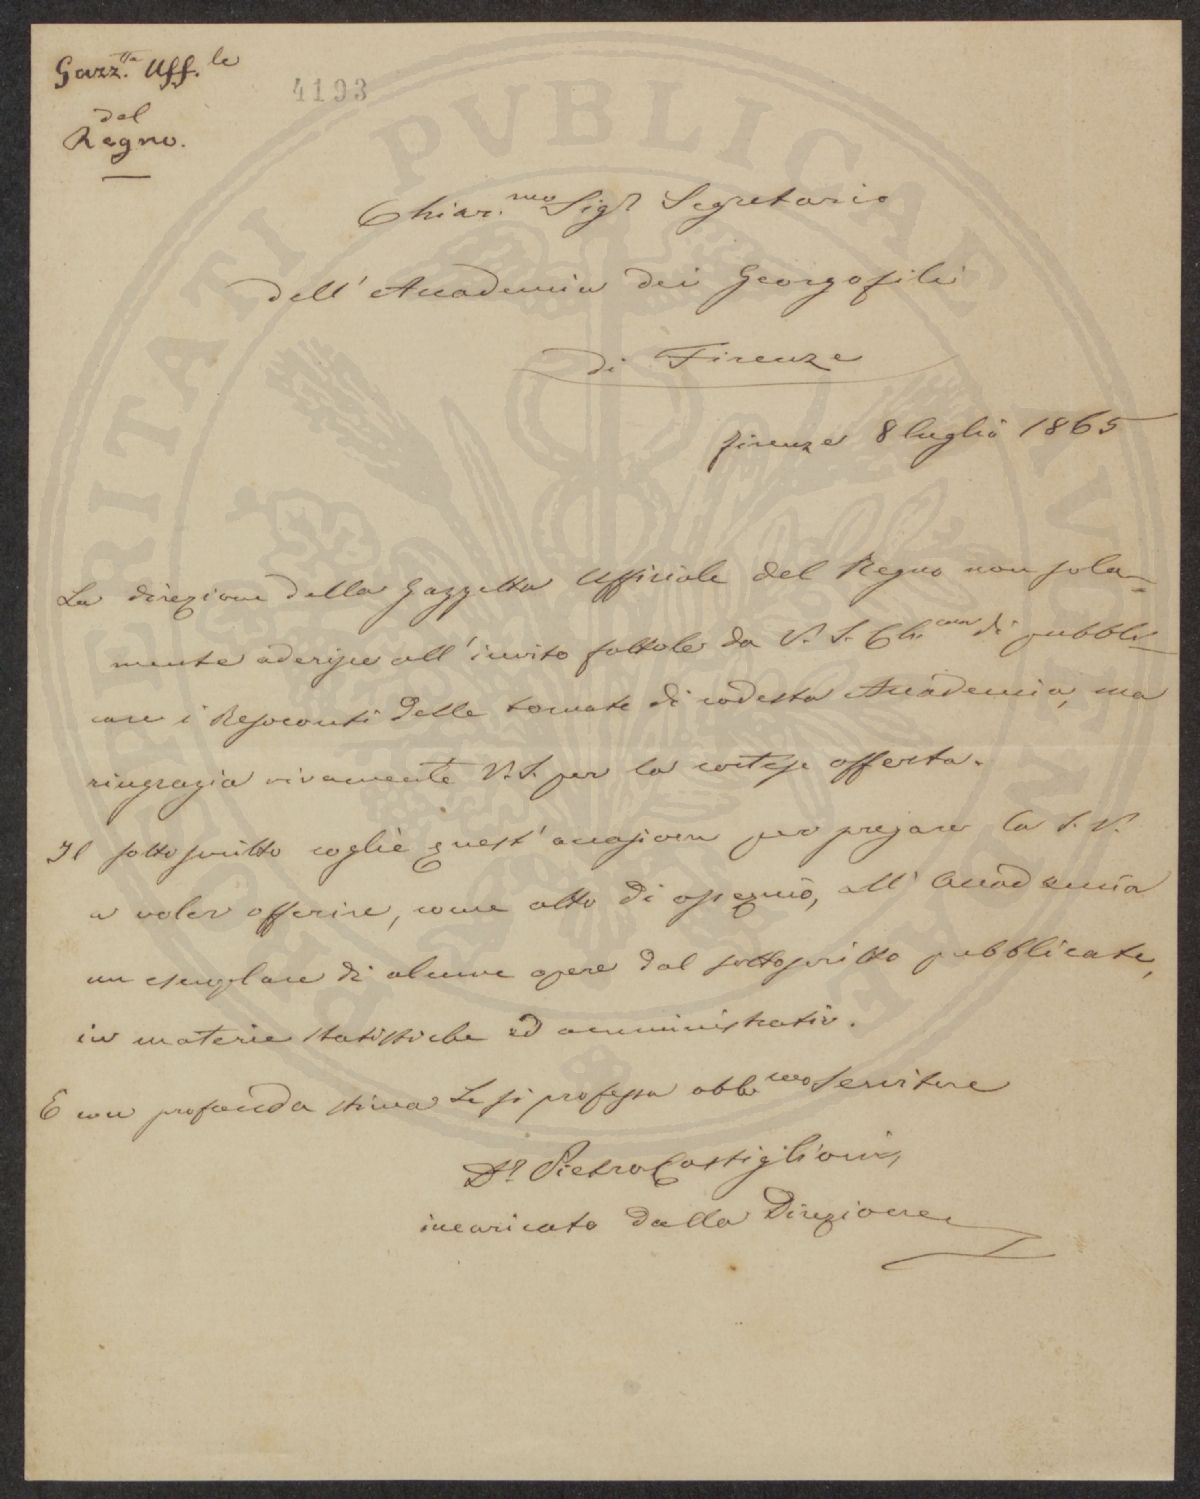 Gazz.tta Uff.le
4193
del
Regno.
Chiar.mo Sigr Segretario
dell'Accademia dei Georgofili
di Firenze
Firenze 8 luglio 1865
La direzione della Gazzetta Ufficiale del Regno non sola=
mente aderisce all'invito fattole da V. S. Ch.ma di pubbli=
care i Resoconti delle tornate di codesta Accademia, ma
ringrazia vivamente V. S. per la cortese offerta.
Il sottoscritto coglie quest'occasione per pregare la S. V.
a voler offerire, come atto di ossequio, all'Accademia
un esemplare di alcune opere dal sottoscritto pubblicate,
in materie statistiche ed amministrative.
E con profonda stima Le si professa obb.mo Servitore
Dr. Pietro Castiglioni,
incaricato dalla Direzione
PROSPERITATI PVBLICAE AVGENDAE